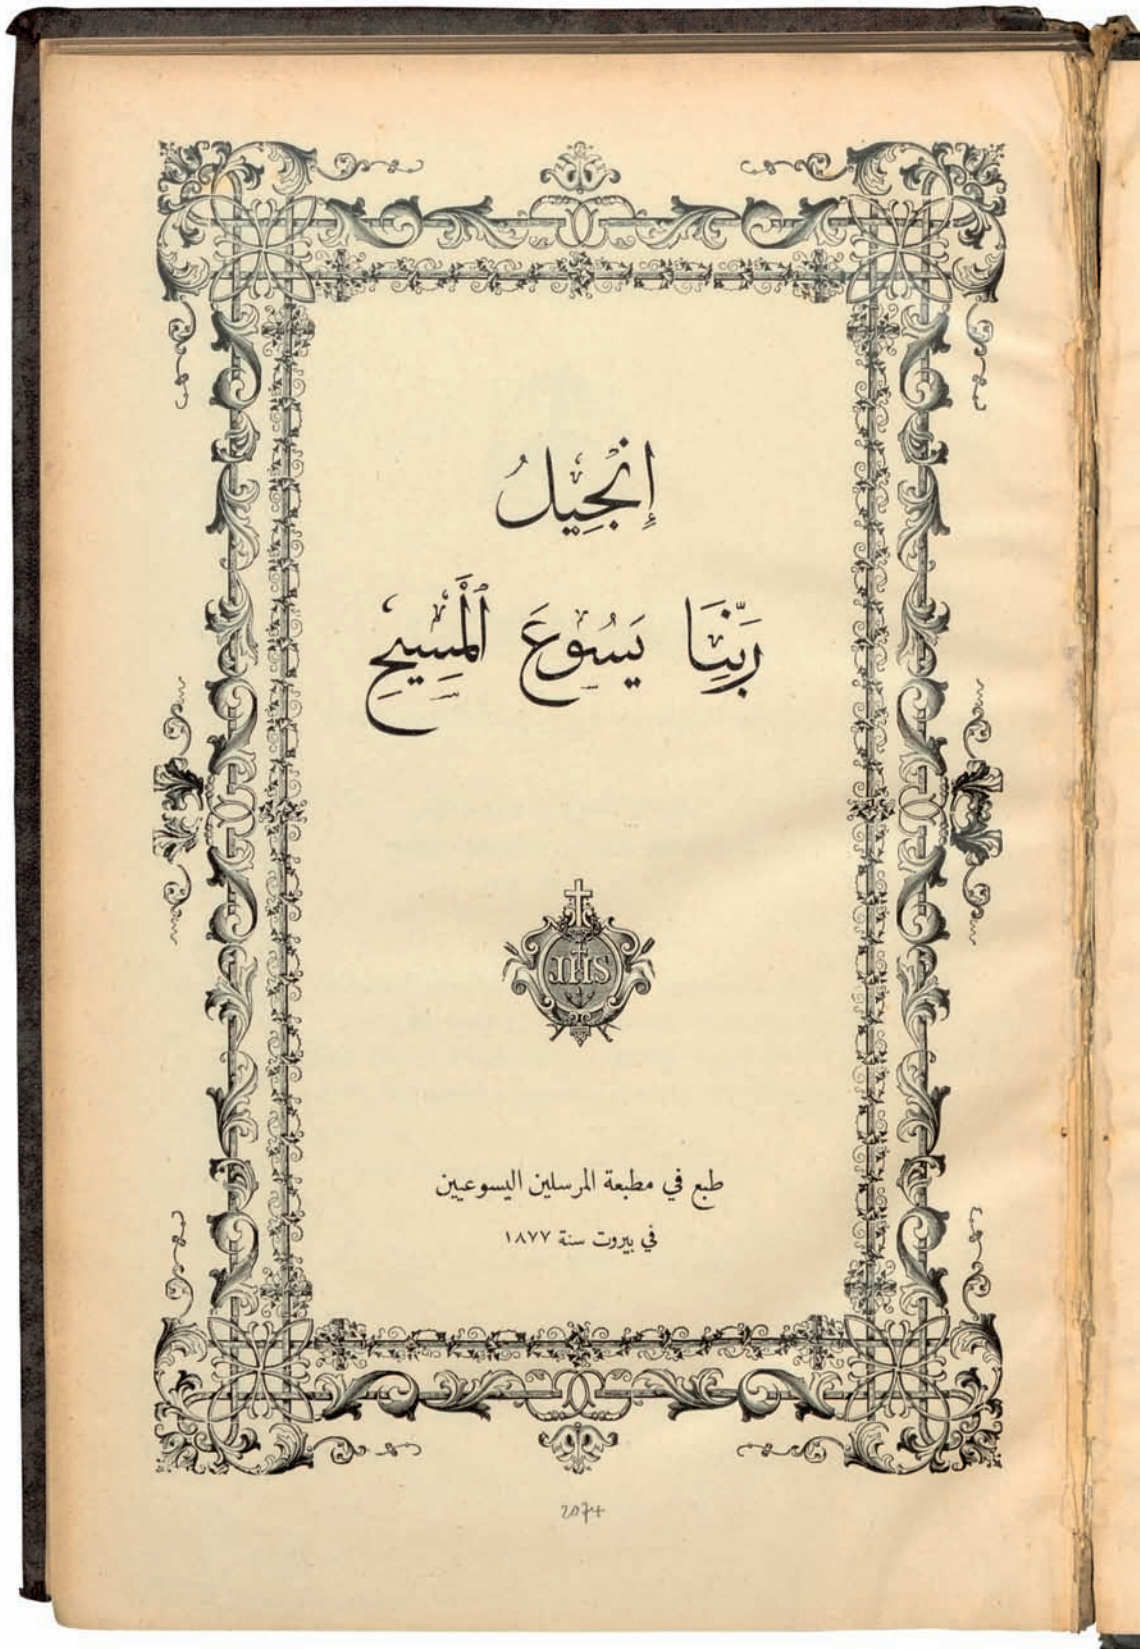 إِنْجِيلُ
رَبِّنَا يَسُوعَ ٱلْمَسِيحِ
JHS
طبع في مطبعة المرسلين اليسوعيين
في بيروت سنة ١٨٧٧